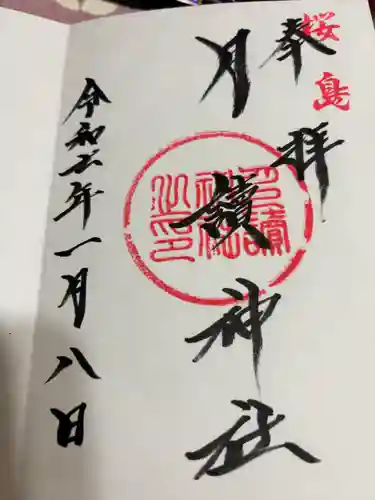 桜島
奉拝
月讀神社
月讀
神社
之印
令和五年一月八日